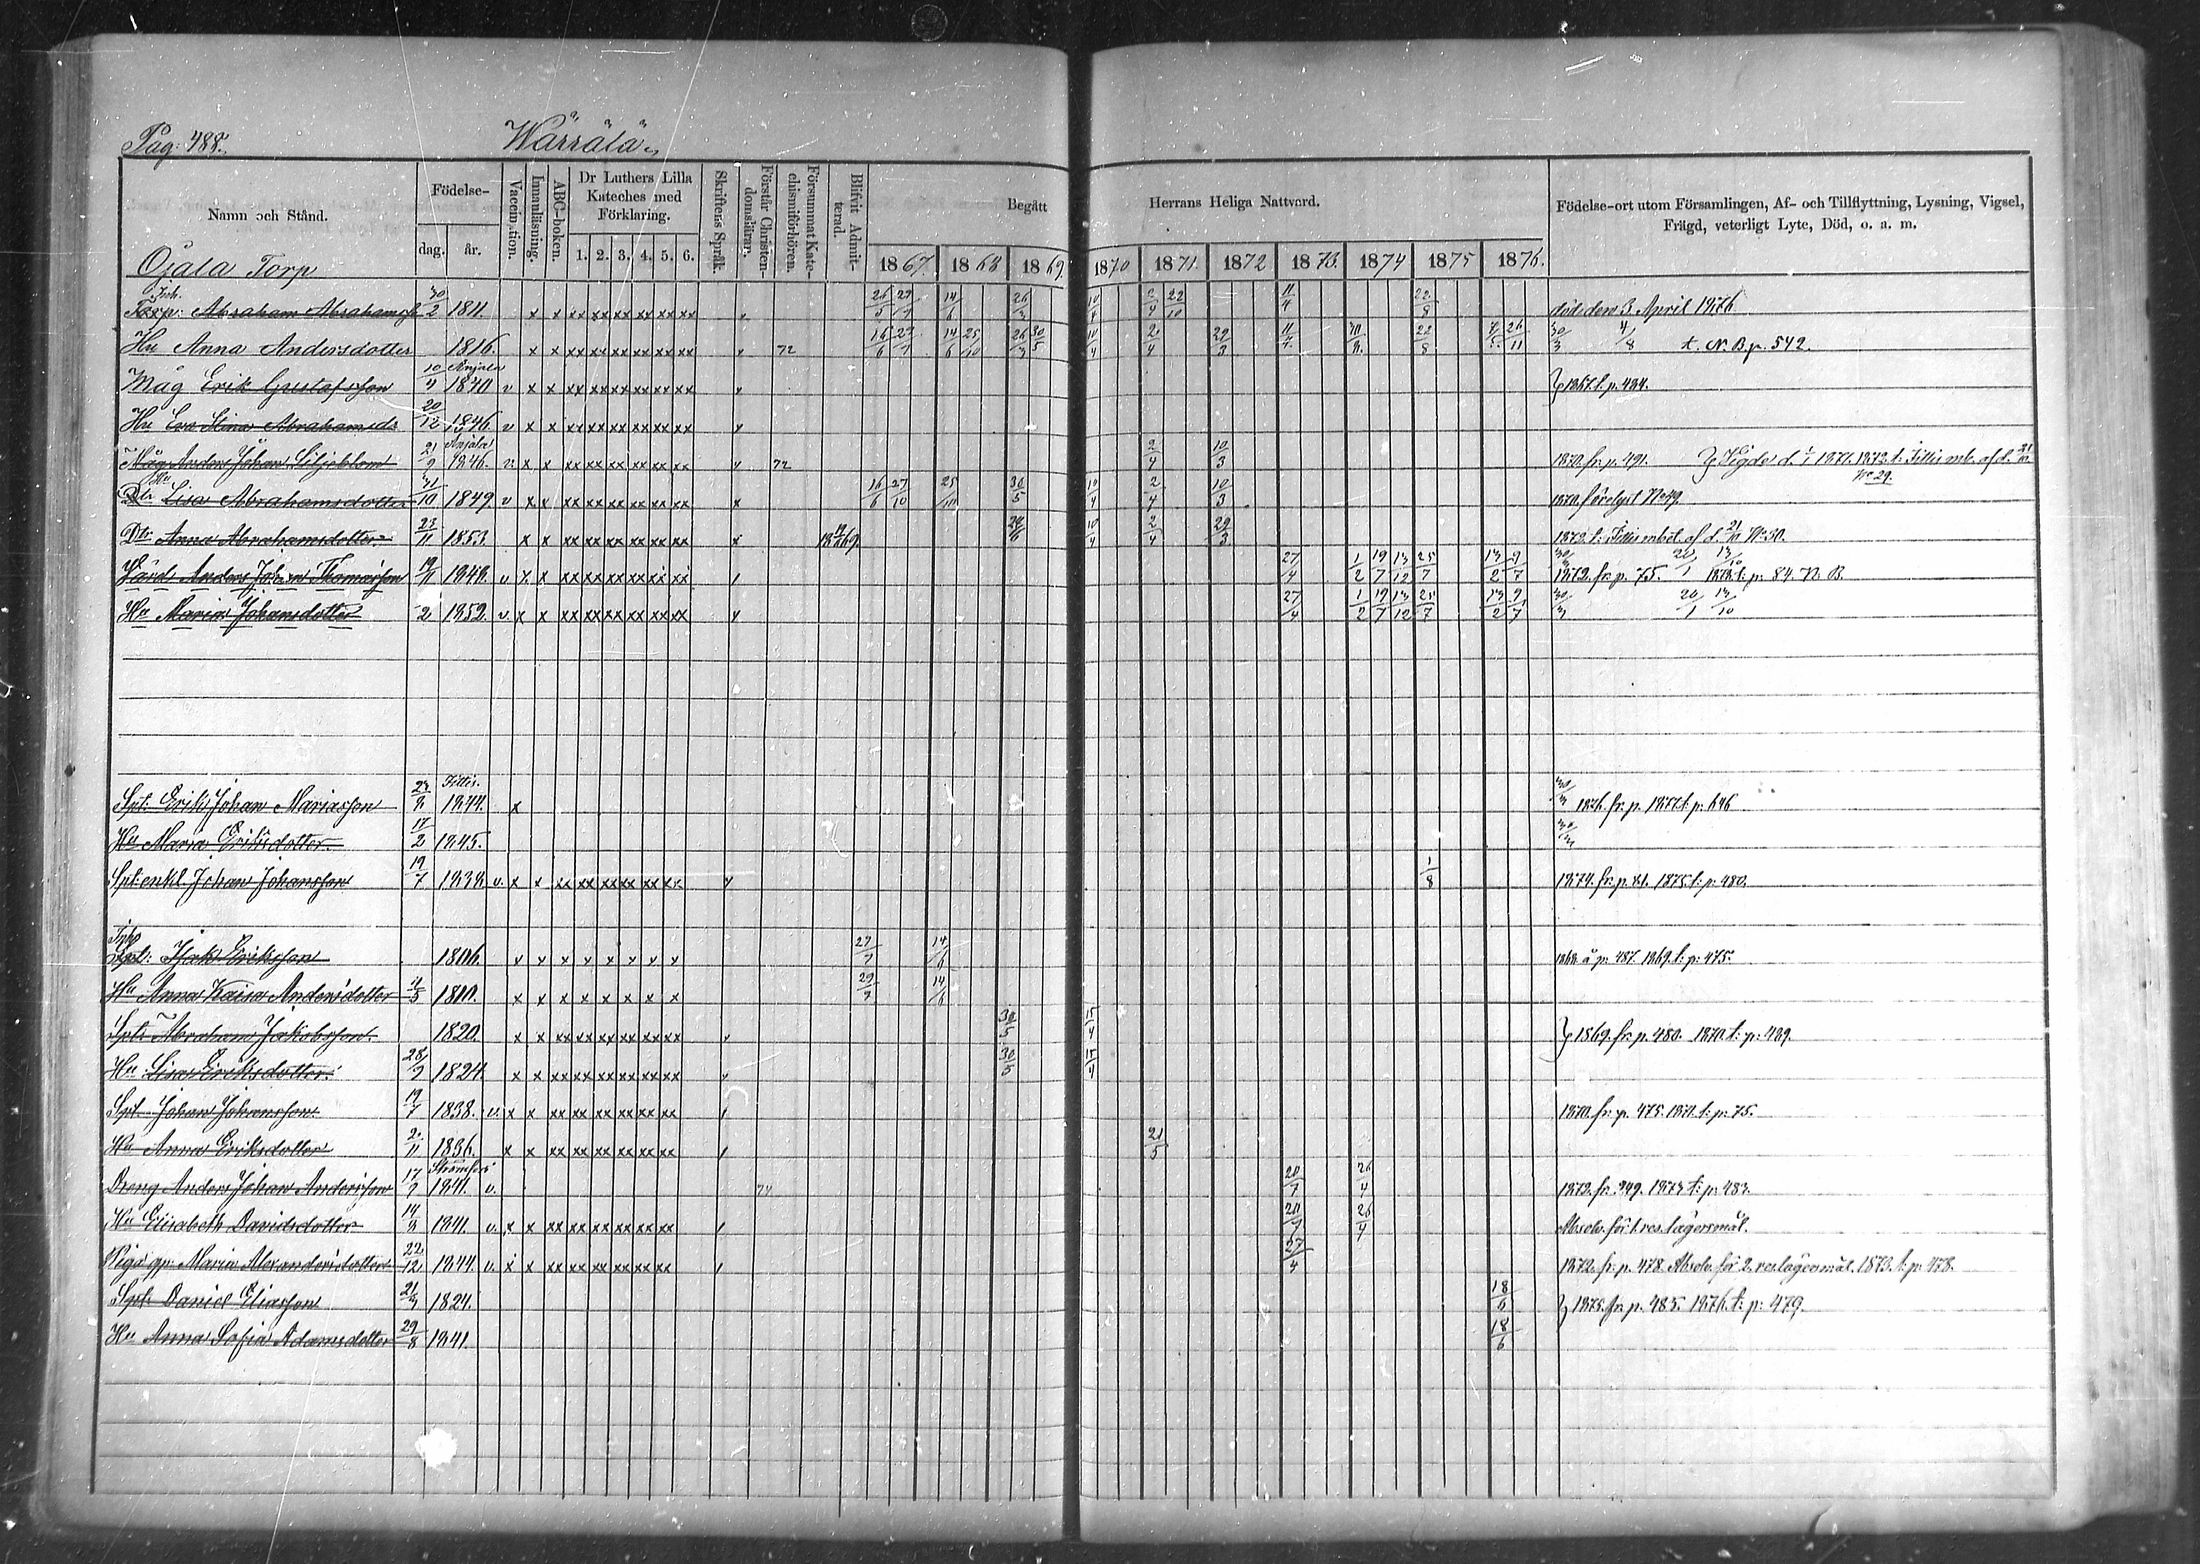 Pag: 488. Wärrälä
Namn och Stånd. Födelse- dag. år. Vaccination. Innanläsning. ABC-boken. Dr Luthers Lilla Kateches med Förklaring. 1. 2. 3. 4. 5. 6. Skriftens Språk. Förstår Christendomslärar. Försummat Katechismiförhören. Blifvit Admitterad. Begått Herrans Heliga Nattvard. Födelse-ort utom Församlingen, Af- och Tillflyttning, Lysning, Vigsel, Frägd, veterligt Lyte, Död, o. a. m.
1867. 1868 1869 1870 1871. 1872 1873. 1874 1875 1876.
Ojala Torp
Inh.
Torp: Abraham Abrahamss 30/2 1811. x x xx xx xx xx xx xx 14/6 26/3 10/4 2/4 22/10 11/4 22/8 död den 3 April 1876
Hu Anna Andersdotter 1816. x x xx xx xx xx xx xx 72 16/6 14/6 25/10 26/3 30/5 10/4 2/4 29/3 11/4 22/8 7/5 26/11 30/3 4/8 t. N. B. p. 542.
Måg Erik Gustafsson 10/4 Anjala 1840 v x x xx xx xx xx xx xx } 1867. t. p. 484.
Hu Eva Stina Abrahamsds 20/12 1846 v x x xx xx xx xx xx xx
Måg Anders Johan Liljeblom 21/9 Anjala 1846. v. x x xx xx xx xx xx xx 72 2/4 10/3 1870. fr. p. 491. } Vigde d. 1/1 1871. 1872. t. Jittis mb. af d. 21/10 No 29.
Hu
Dtr Lisa Abrahamsdotter 31/10 1849. v x x xx xx xx xx xx xx x 16/6 27/10 25/10 30/5 10/4 2/4 10/3 1870. förelyst No 49.
Dtr Anna Abrahamsdotter 23/11 1853. x x xx xx xx xx xx xx x 10/4 2/4 29/3 1872. t. Jittis mbet. af d. 21/10 No 30.
Anders Johan Thomasson 19/11 1848. v x x xx xx xx xx xx xx 27/4 1/2 19/7 13/12 25/7 13/2 9/7 30/3 20/1 13/10 1872. fr. p. 75. t. p. 84. N. B.
Hu Maria Johansdotter 2 1852. v. x x xx xx xx xx xx xx 27/4 1/2 19/7 13/12 25/7 13/2 9/7 30/3 20/1 13/10
Spt: Erik Johan Mariasson 23/8 Jittis. 1844. x 30/3 1876. fr. p. 1877. t. p. 646
Hu Maria Eriksdotter 17/2 1845. 30/3
Spt: enkl. Johan Johansson 19/7 1838 v. x x xx xx xx xx xx xx 1/8 1874. fr. p. 1875. t. p. 480.
Inh
Spt: Isak Eriksson 1806. v x x x x x v x 14/6 1868 å p. 487. 1869. t. p. 475.
Hu Anna Kaisa Andersdotter 4/5 1810. x x x x x x x x 14/6
Spt: Abraham Jakobsson. 1820. x x xx xx xx xx xx xx 30/5 15/4 } 1869. fr. p. 480. 1870. t. p. 489.
Hu Lisa Eriksdotter. 28/9 1824. x x xx xx xx xx xx xx 30/5 15/4
Spt Johan Johansson 19/7 1838. v. x x xx xx xx xx xx xx 1870. fr. p. 475. 1871. t. p. 75.
Hu Anna Eriksdotter 2/11 1836. x x xx xx xx xx xx xx 21/5
Dreng Anders Johan Andersson 17/9 Strömfors 1841. v. 74 20/7 26/4 1872. fr. 249. 1873 t. p. 483.
Hu Elisabeth Davidsdotter 14/3 1841. v. x x xx xx xx xx xx xx 20/7 26/4 Absolv. för 1. res. lägersmål.
Piga qp: Maria Alexandersdotter 22/12 1844. v. x x xx xx xx xx xx xx 27/4 1872. fr. p. 478. Absolv. för 2. res. lägersmål. 1873. t. p. 478.
Spt: Daniel Eliasson 21/3 1824. 18/6 } 1875. fr. p. 485. 1876. t. p. 479.
Hu Anna Sofia Adamsdotter 29/8 1841. 18/6